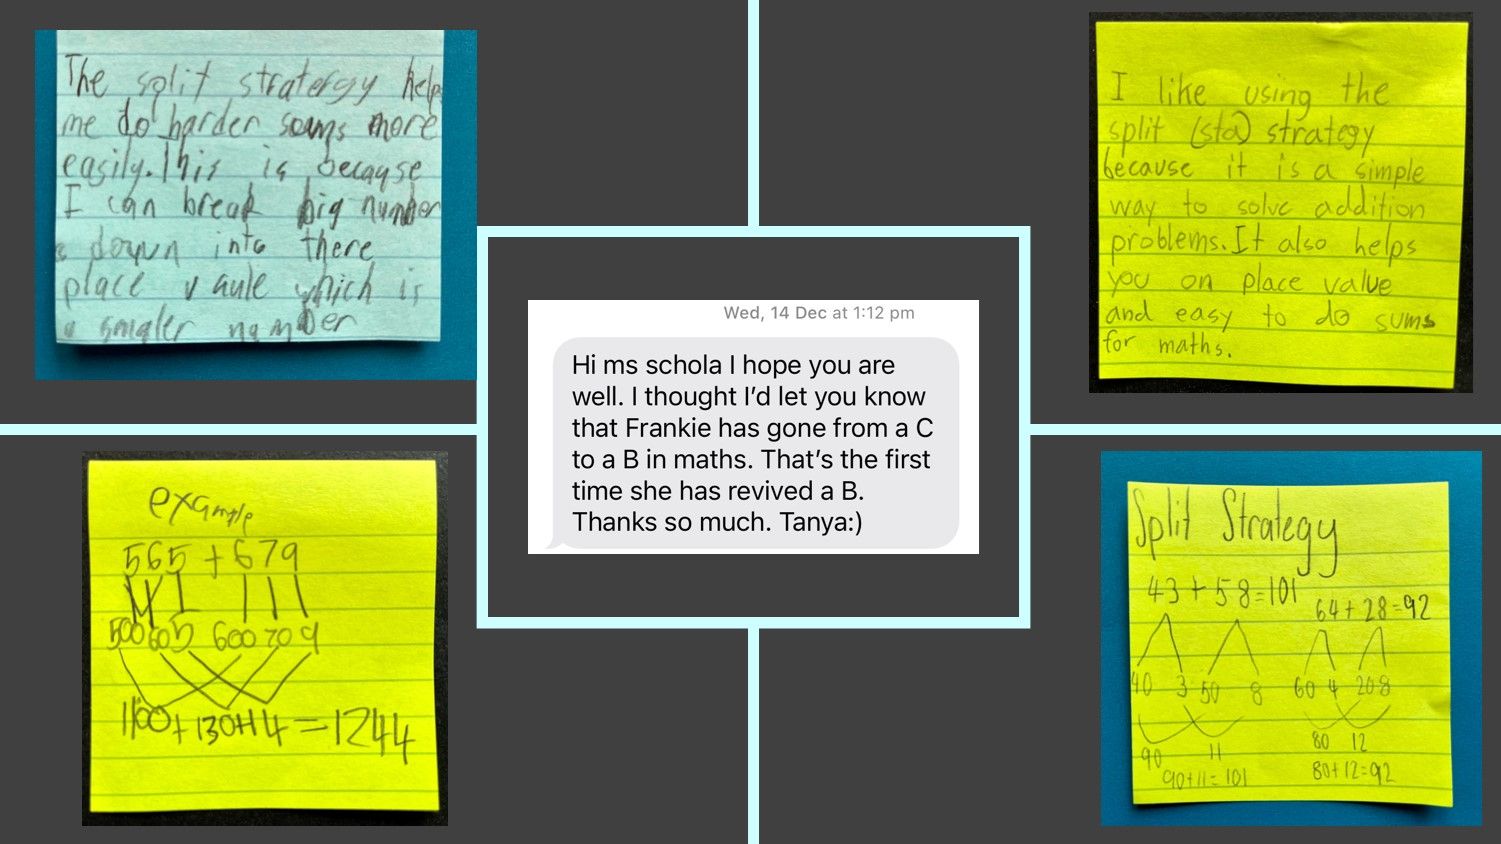 The split stratergy help
me do harder soums more
easily. This is because
I can break big number
s down into there
place vaule which is
a smaler number
I like using the
split (sta) strategy
because it is a simple
way to solve addition
problems. It also helps
you on place value
and easy to do sums
for maths.
Wed, 14 Dec at 1:12 pm
Hi ms schola I hope you are
well. I thought I’d let you know
that Frankie has gone from a C
to a B in maths. That’s the first
time she has revived a B.
Thanks so much. Tanya:)
example
565 + 679
500 60 5 600 70 9
1100 + 130 + 14 = 1244
Split Strategy
43 + 58 = 101
64 + 28 = 92
40 3 50 8 60 4 20 8
90 11 80 12
90+11=101 80+12=92